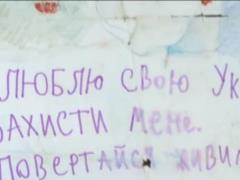 ЛЮБЛЮ СВОЮ УК
ЗАХИСТИ МЕНЕ.
ПОВЕРТАЙСЯ ЖИВИМ